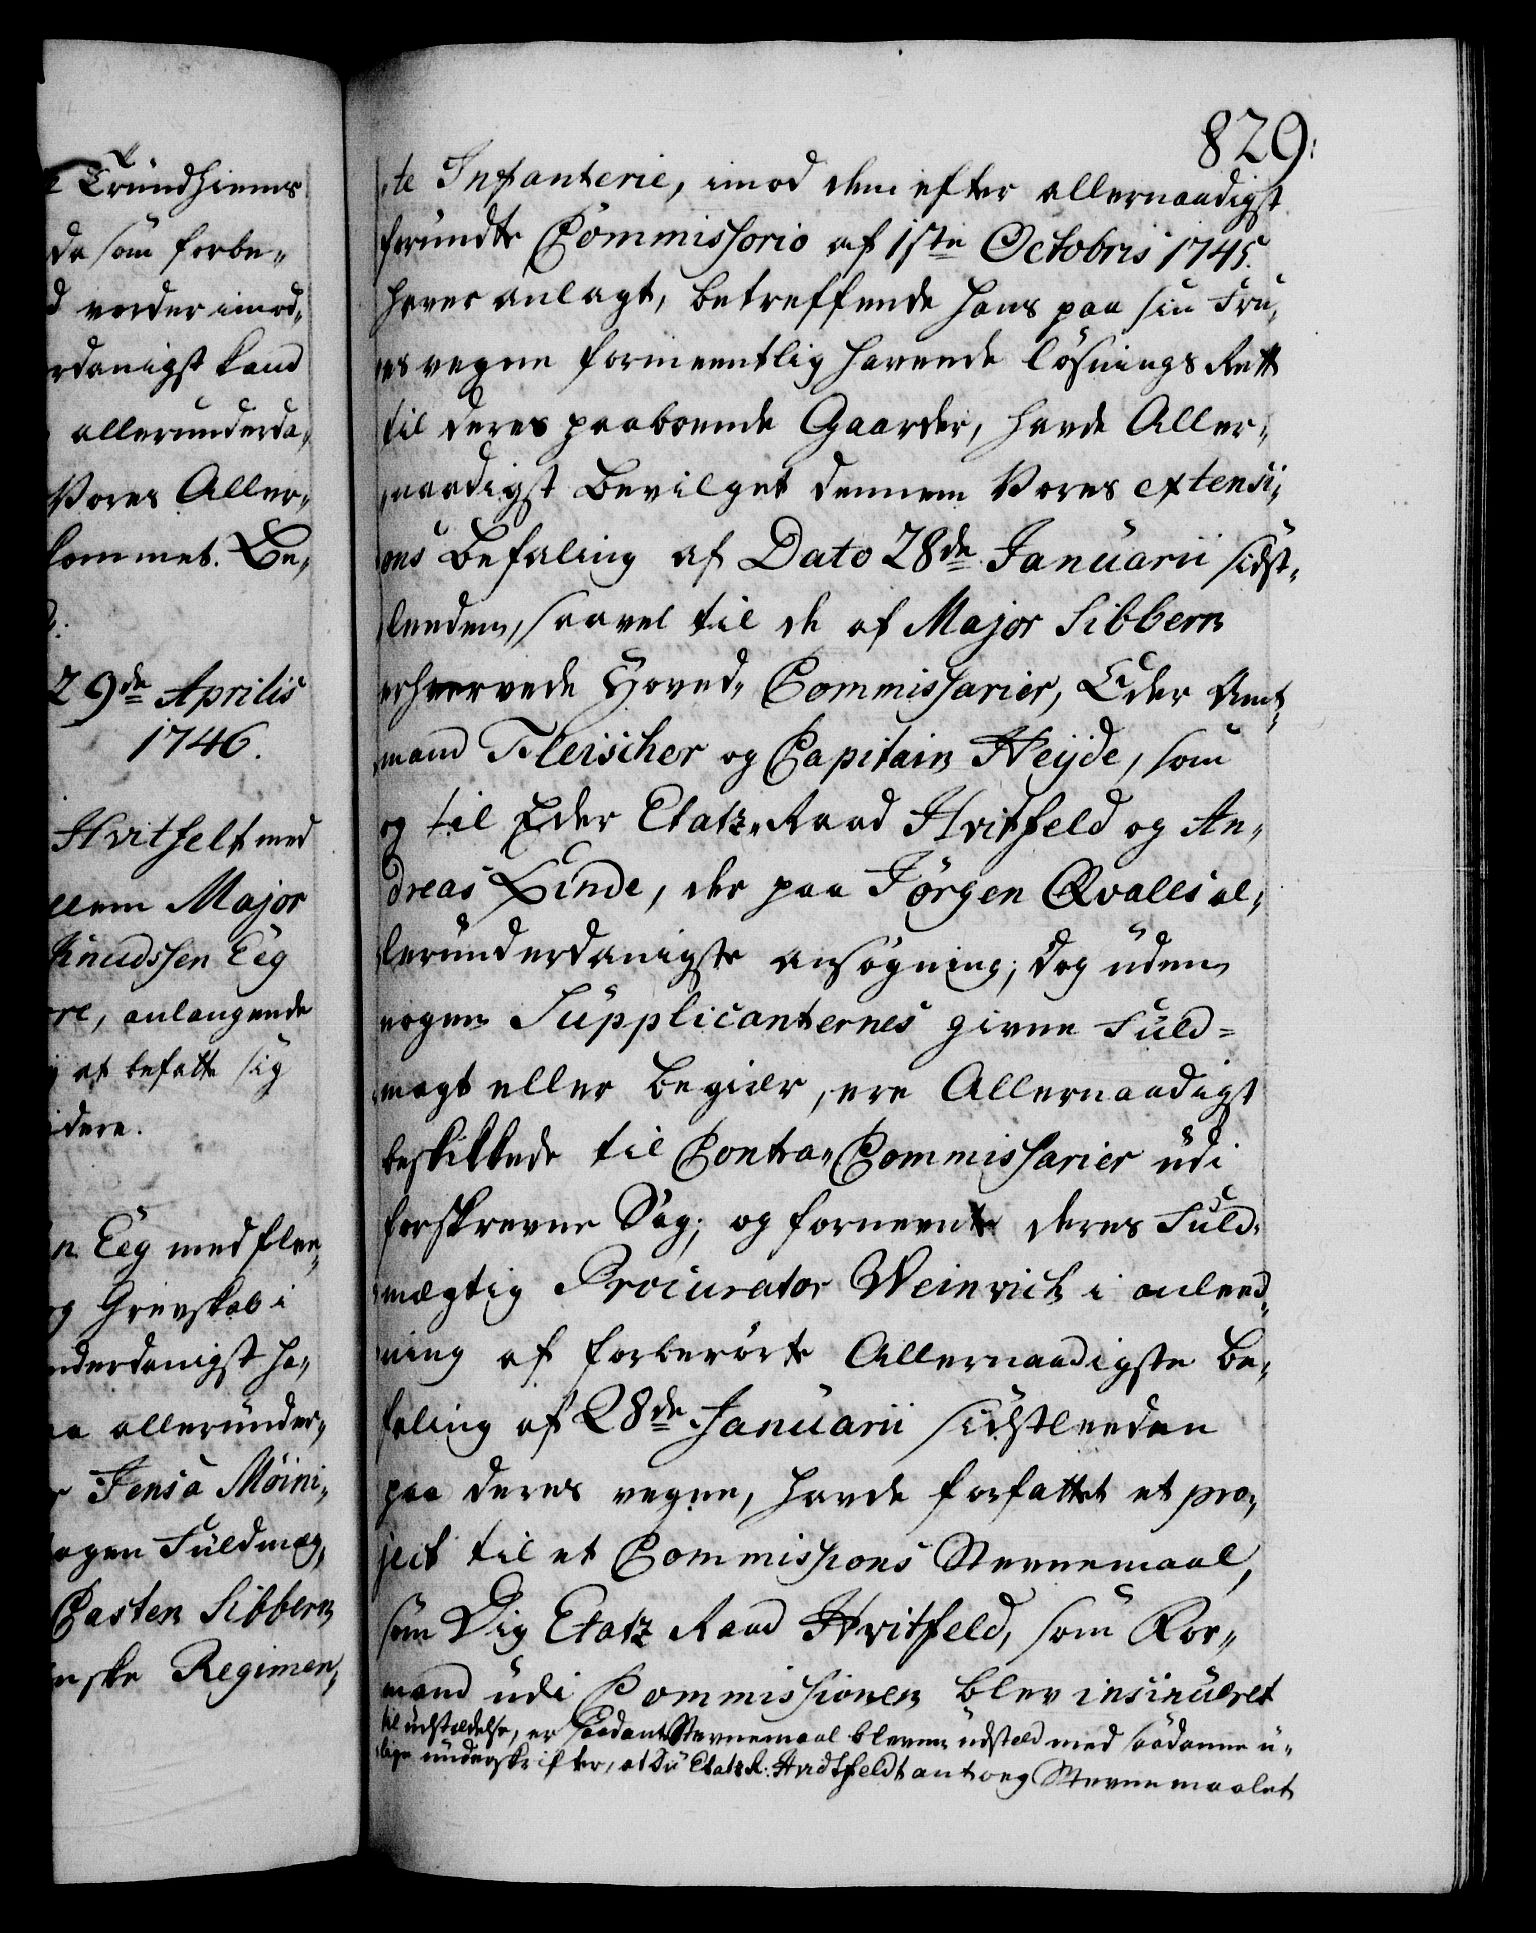 Trundhiems
da som forbe„
d vorder imod„
rdanigst kand
allerunderda„
Vores Aller„
kommet. Be„
29de Aprilis
1746.
Hvitfelt med
ellem Major
Knudssen Eeg
re, anlangende
at befatte sig
idere.
n Eeg med flee„
og Grevskab i
nderdanigst ha„
aa allerunder„
r Jens a Möini„
ogen Fuldmæg„
Casten Sibbern
nske Regimen„
829.
„te Infanterie, imod dem efter allernaadigst
forundte Commissorio af 1ste Octobris 1745.
haver anlagt, betreffende hans paa sin Fru„
es vegne formeentlig havende lösnings Rett
til deres paaboende Gaarder, havde Aller„
naadigst Bevilget dennem Vores extensi„
ons Befaling af Dato 28de Januarii sidst„
leeden, saavel til de af Major Sibbern
erhvervede Hoved„ Commissarier, Eder Amt„
mand Fleischer og Capitain Heyde, som
og til Eder Etatz„Raad Hvitfeld og An„
dreas Linde, der paa Jörgen Qvalls al„
lerunderdanigste ansögning, dog uden
nogen Supplicanternes givne Fuld=
magt eller begiær, ere Allernaadigst
beskikkede til Contra„Commissarier udi
forskrevne Sag; og fornevnte deres Fuld„
mægtig Procurator Weinrich i anleed„
ning af forberörte Allernaadigste Be„
faling af 28de Januarii sidstleeden
paa deres vegne, havde forfattet et pro„
ject til et Commissions Stevnemaal,
som Dig Etatz Raad Hvitfeld, som For„
mand udi Commissionen blev insinueret
til udstædelse, er saadant Stevnemaal bleven udstæd med saadanne u„
lige underskrifter, at Du Etatz R: Hvidtfeldt antog Stevnemaalet